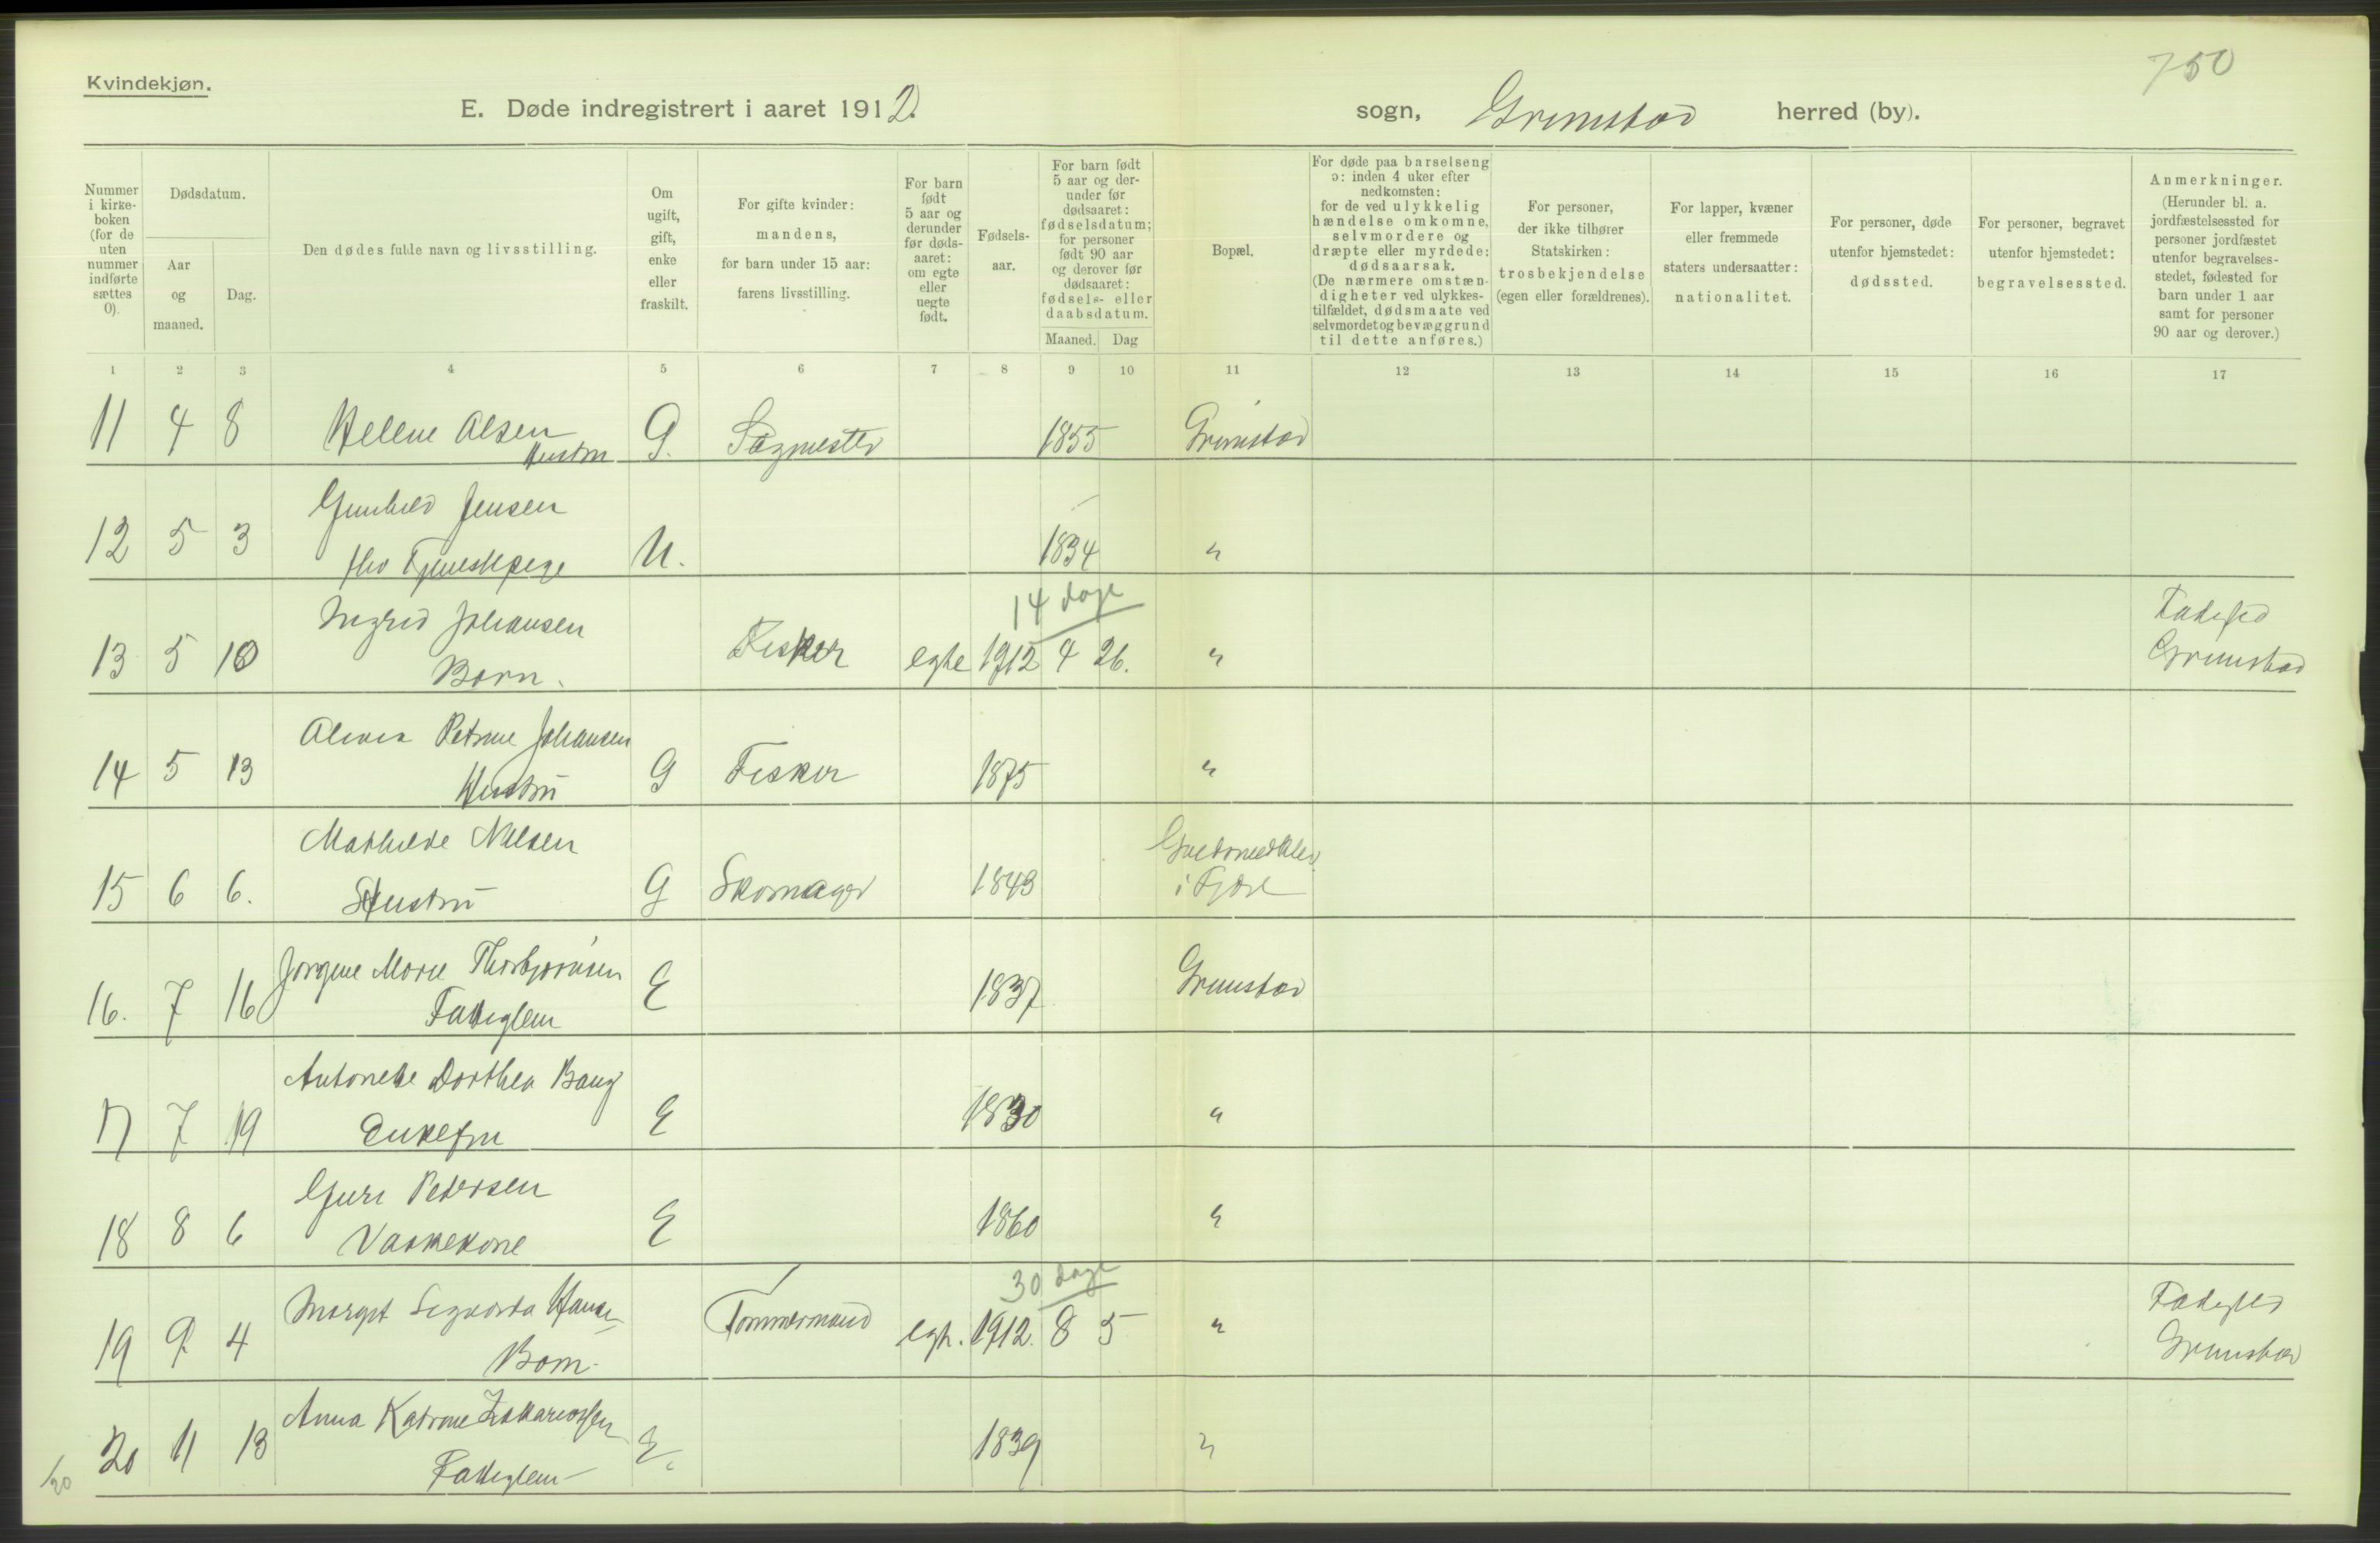 750
Kvindekjøn.
E. Døde indregistrert i aaret 1912. sogn, Grimstad herred (by).
Nummer i kirkeboken (for de uten nummer indførte sættes 0).
Dødsdatum.
Aar og maaned.
Dag.
Den dødes fulde navn og livsstilling.
Om ugift, gift, enke eller fraskilt.
For gifte kvinder: mandens, for barn under 15 aar: farens livsstilling.
For barn født 5 aar og derunder før dødsaaret: om egte eller uegte født.
Fødselsaar.
For barn født 5 aar og derunder før dødsaaret: fødselsdatum; for personer født 90 aar og derover før dødsaaret: fødsels- eller daabsdatum.
Maaned. Dag
Bopæl.
For døde paa barselseng ɔ: inden 4 uker efter nedkomsten: for de ved ulykkelig hændelse omkomne, selvmordere og dræpte eller myrdede: dødsaarsak. (De nærmere omstændigheter ved ulykkestilfældet, dødsmaate ved selvmordet og bevæggrund til dette anføres.)
For personer, der ikke tilhører Statskirken: trosbekjendelse (egen eller forældrenes).
For lapper, kvæner eller fremmede staters undersaatter: nationalitet.
For personer, døde utenfor hjemstedet: dødssted.
For personer, begravet utenfor hjemstedet: begravelsessted.
Anmerkninger. (Herunder bl. a. jordfæstelsessted for personer jordfæstet utenfor begravelsesstedet, fødested for barn under 1 aar samt for personer 90 aar og derover.)
1 2 3 4 5 6 7 8 9 10 11 12 13 14 15 16 17
11 4 8 Helene Olsen G. Sagmester 1855 Grimstad
Hustru
Gunhild Jensen
12 5 3 fhv Tjenestepige U. 1834 "
14 dage
Ingrid Johansen Fødested
13 5 10 Barn. Fisker egte 1912 4 26. " Grimstad
Petrine Johansen
14 5 13 Hustru G Fisker 1875 "
Mathilde Nilsen
15 6 6. Hustru G Skomager 1843 i Fjære
Jørgine Marie Thorbjørnsen
16. 7 16 Fattiglem E 1837 Grimstad
Antonette Dorthea Bang
17 7 19 Enkefru E 1830 "
Guri Petersen
18 8 6 Vaskekone E 1860 "
30 dage
Margit Sigvarda Hansen Fødested
19 9 4 Barn Tømmermand egte. 1912. 8 5 " Grimstad
Anna Katrine Zakariassen
20 11 13 Fattiglem E. 1839 "
/20